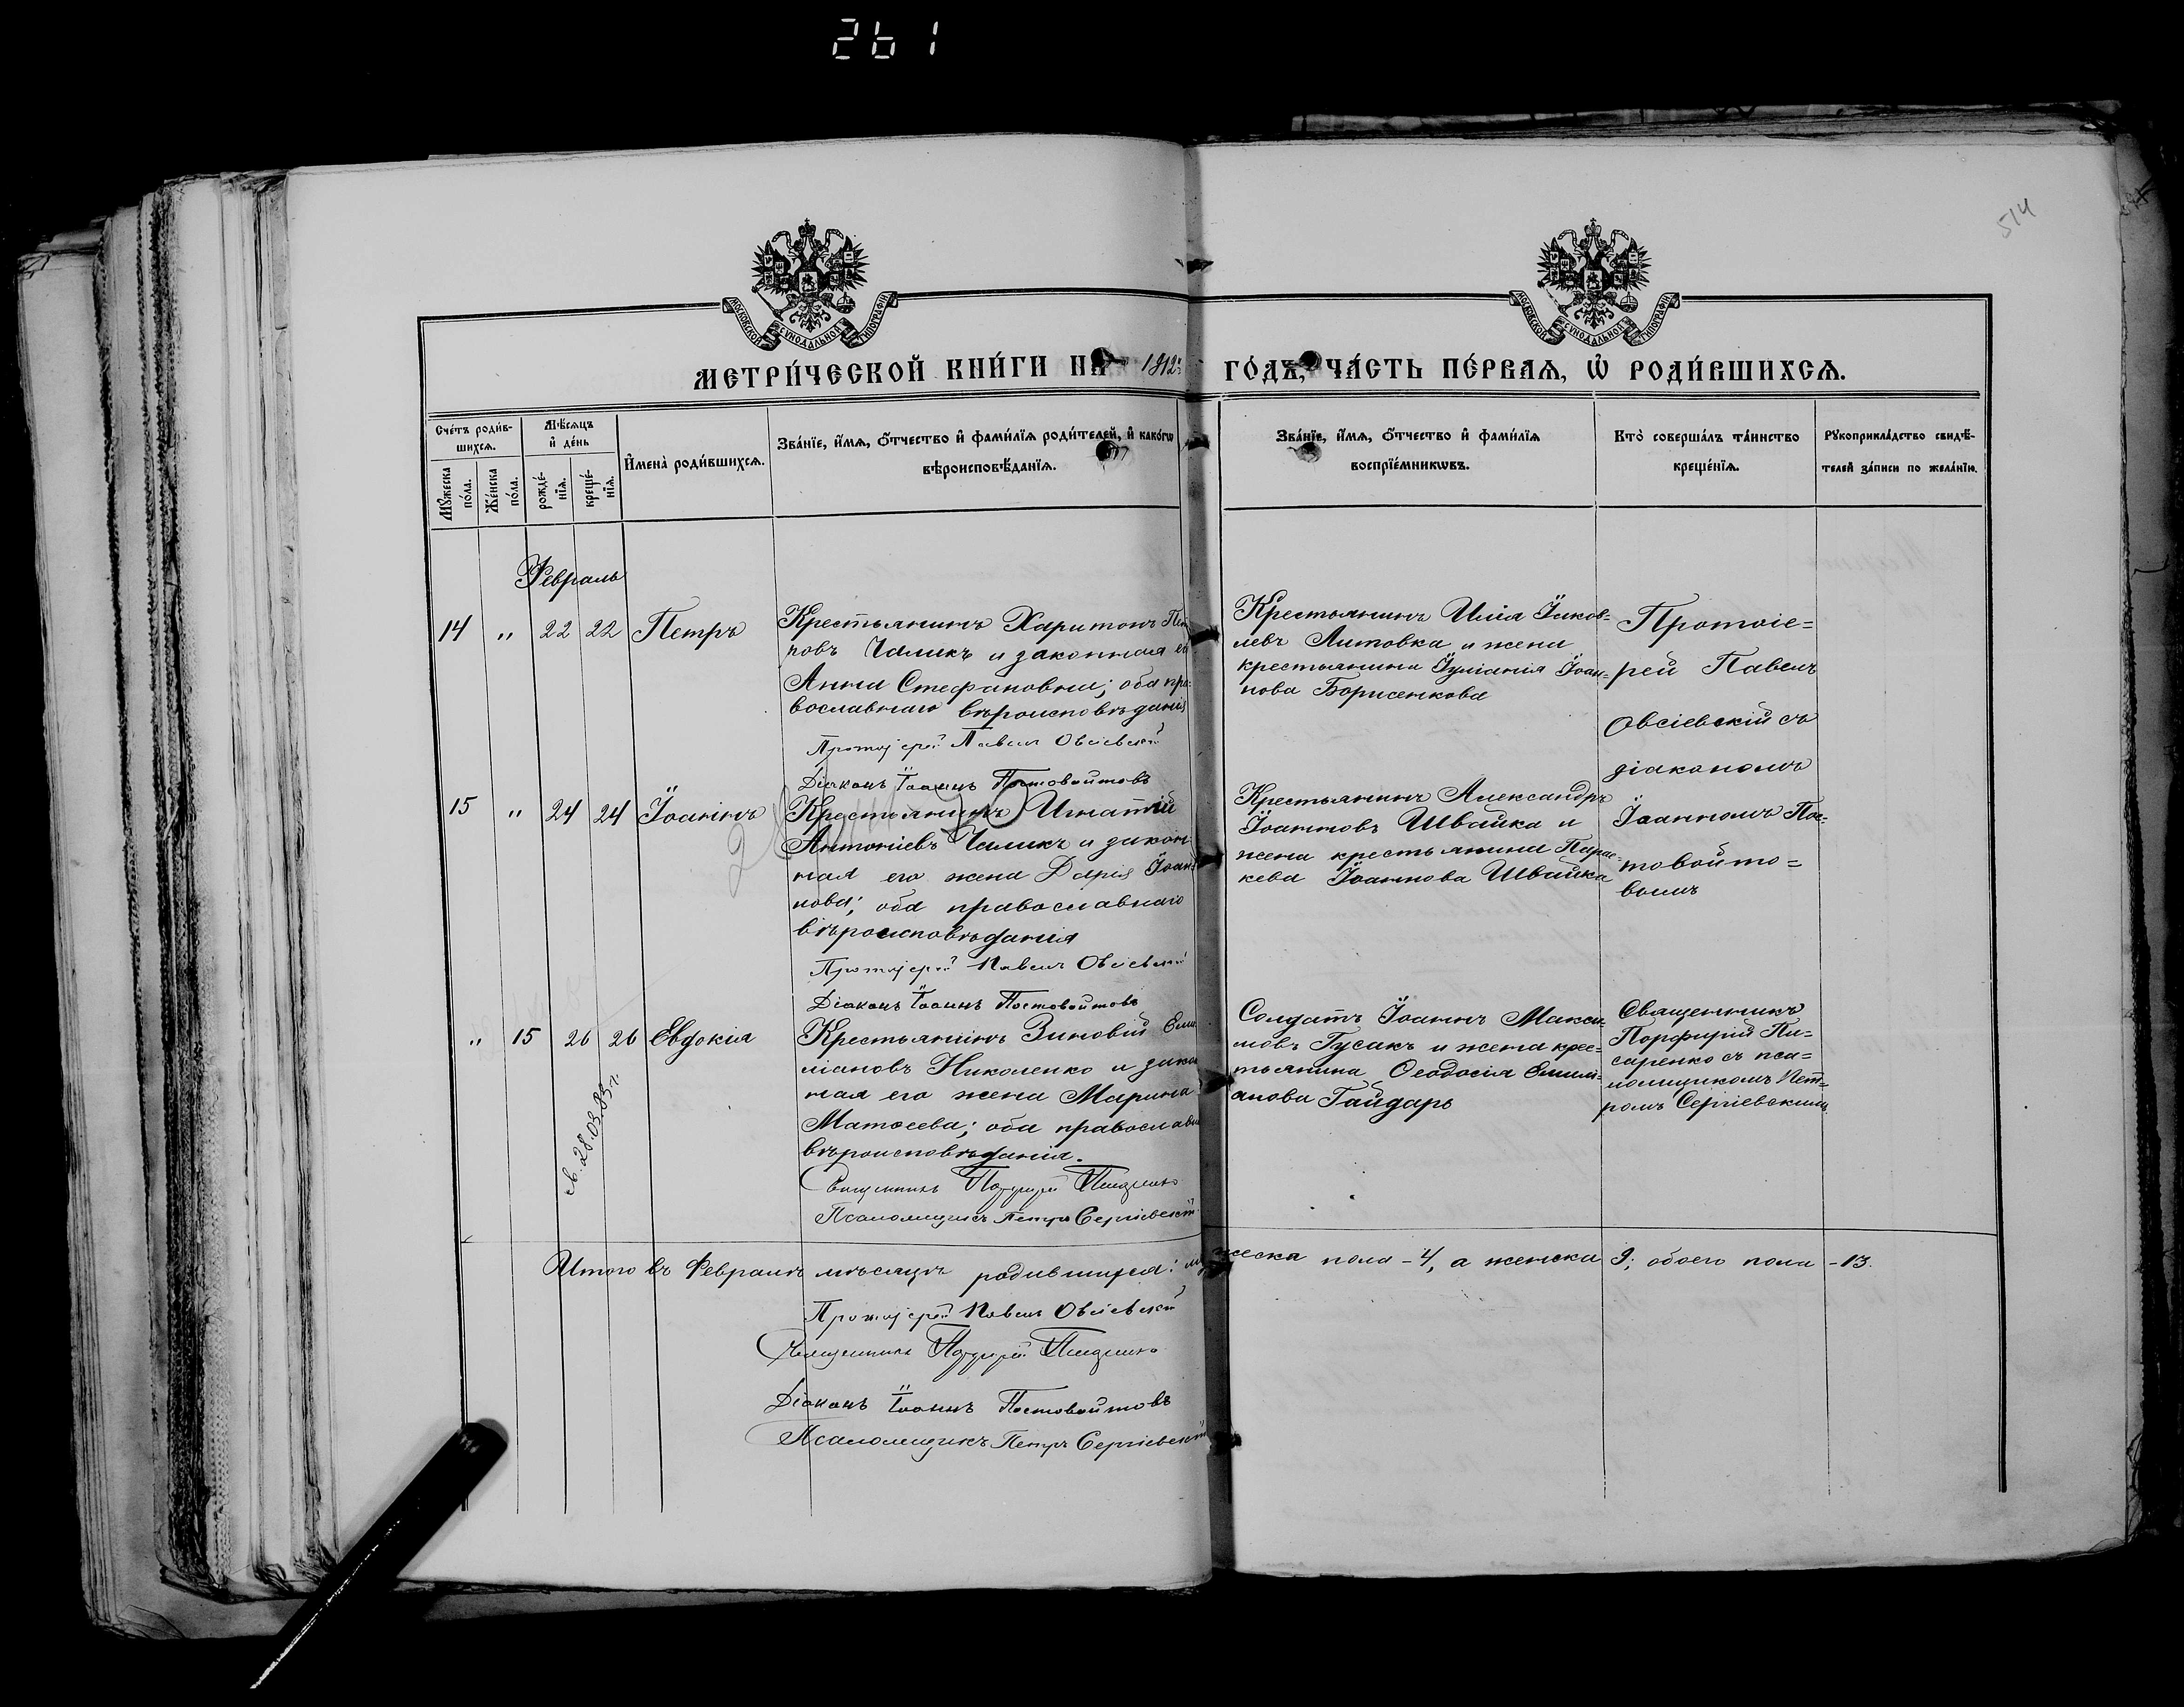 261
514
МОСКОВСКОЙ СУНОДАЛЬНОЙ ТИПОГРАФІИ
МОСКОВСКОЙ СУНОДАЛЬНОЙ ТИПОГРАФІИ
МЕТРИ́ЧЕСКОЙ КНИ́ГИ НА 1912 ГО́ДЪ, ЧА́СТЬ ПЕ́РВАѦ, Ѡ҆ РОДИ́ВШИХСѦ.
Сче́тъ роди́в-
шихсѧ.
Мѣ́сѧцъ
и҆ де́нь
Мꙋ́жеска
по́ла.
Же́нска
по́ла.
рожде́-
нїѧ.
креще́-
нїѧ.
И҆мена̀ роди́вшихсѧ.
Зва́нїе, и҆́мѧ, ѻ҆́тчество и҆ фами́лїѧ роди́телей, и҆ како́гѡ
вѣроисповѣ́данїѧ.
Зва́нїе, и҆́мѧ, ѻ҆́тчество и҆ фами́лїѧ
воспрїе́мникѡвъ.
Кто̀ соверша́лъ та́инство
креще́нїѧ.
Рꙋкоприкла́дство свидѣ́-
телей за́писи по жела́нїю.
Февраль
14 " 22 22 Петръ
Крестьянинъ Харитонъ Пет
ровъ Чаликъ и законная его
Анна Стефановна; оба пра-
вославнаго вѣроисповѣданія
Протоіерей Павелъ Овсіевскій
Діаконъ Іоаннъ Постовойтовъ
Крестьянинъ Илія Іаков-
левъ Литовка и жена
крестьянина Іуліанія Іоан-
нова Борисенкова
Протоіе-
рей Павелъ
Овсіевскій съ
діакономъ
Іоанномъ Пос-
товойто-
вымъ
15 " 24 24 Іоаннъ
Крестьянинъ Игнатій
Антоніевъ Чаликъ и закон
ная его жена Дарія Іоан
нова; оба православнаго
вѣроисповѣданія
Протоіерей Павелъ Овсіевскій
Діаконъ Іоаннъ Постовойтовъ
Крестьянинъ Александръ
Іоанновъ Швайка и
жена крестьянина Парас-
кева Іоаннова Швайка
" 15 26 26 Евдокія
св. 28.03.83 г.
Крестьянинъ Зиновій Еми
ліановъ Николенко и закон
ная его жена Марина
Матѳеева; оба православн
вѣроисповѣданія.
Священникъ Порфирій Писаренко
Псаломщикъ Петръ Сергіевскій
Солдатъ Іоаннъ Макси-
мовъ Гусакъ и жена крес-
тьянина Ѳеодосія Емилі-
анова Гайдарь
Священникъ
Порфирій Пи-
саренко съ пса-
ломщикомъ Пет-
ромъ Сергіевскимъ
Итого въ Февралѣ мѣсяцѣ родившихся: мужеска пола - 4, а женска 9; обоего пола - 13.
Протоіерей Павелъ Овсіевскій
Священникъ Порфирій Писаренко
Діаконъ Іоаннъ Постовойтовъ
Псаломщикъ Петръ Сергіевскій